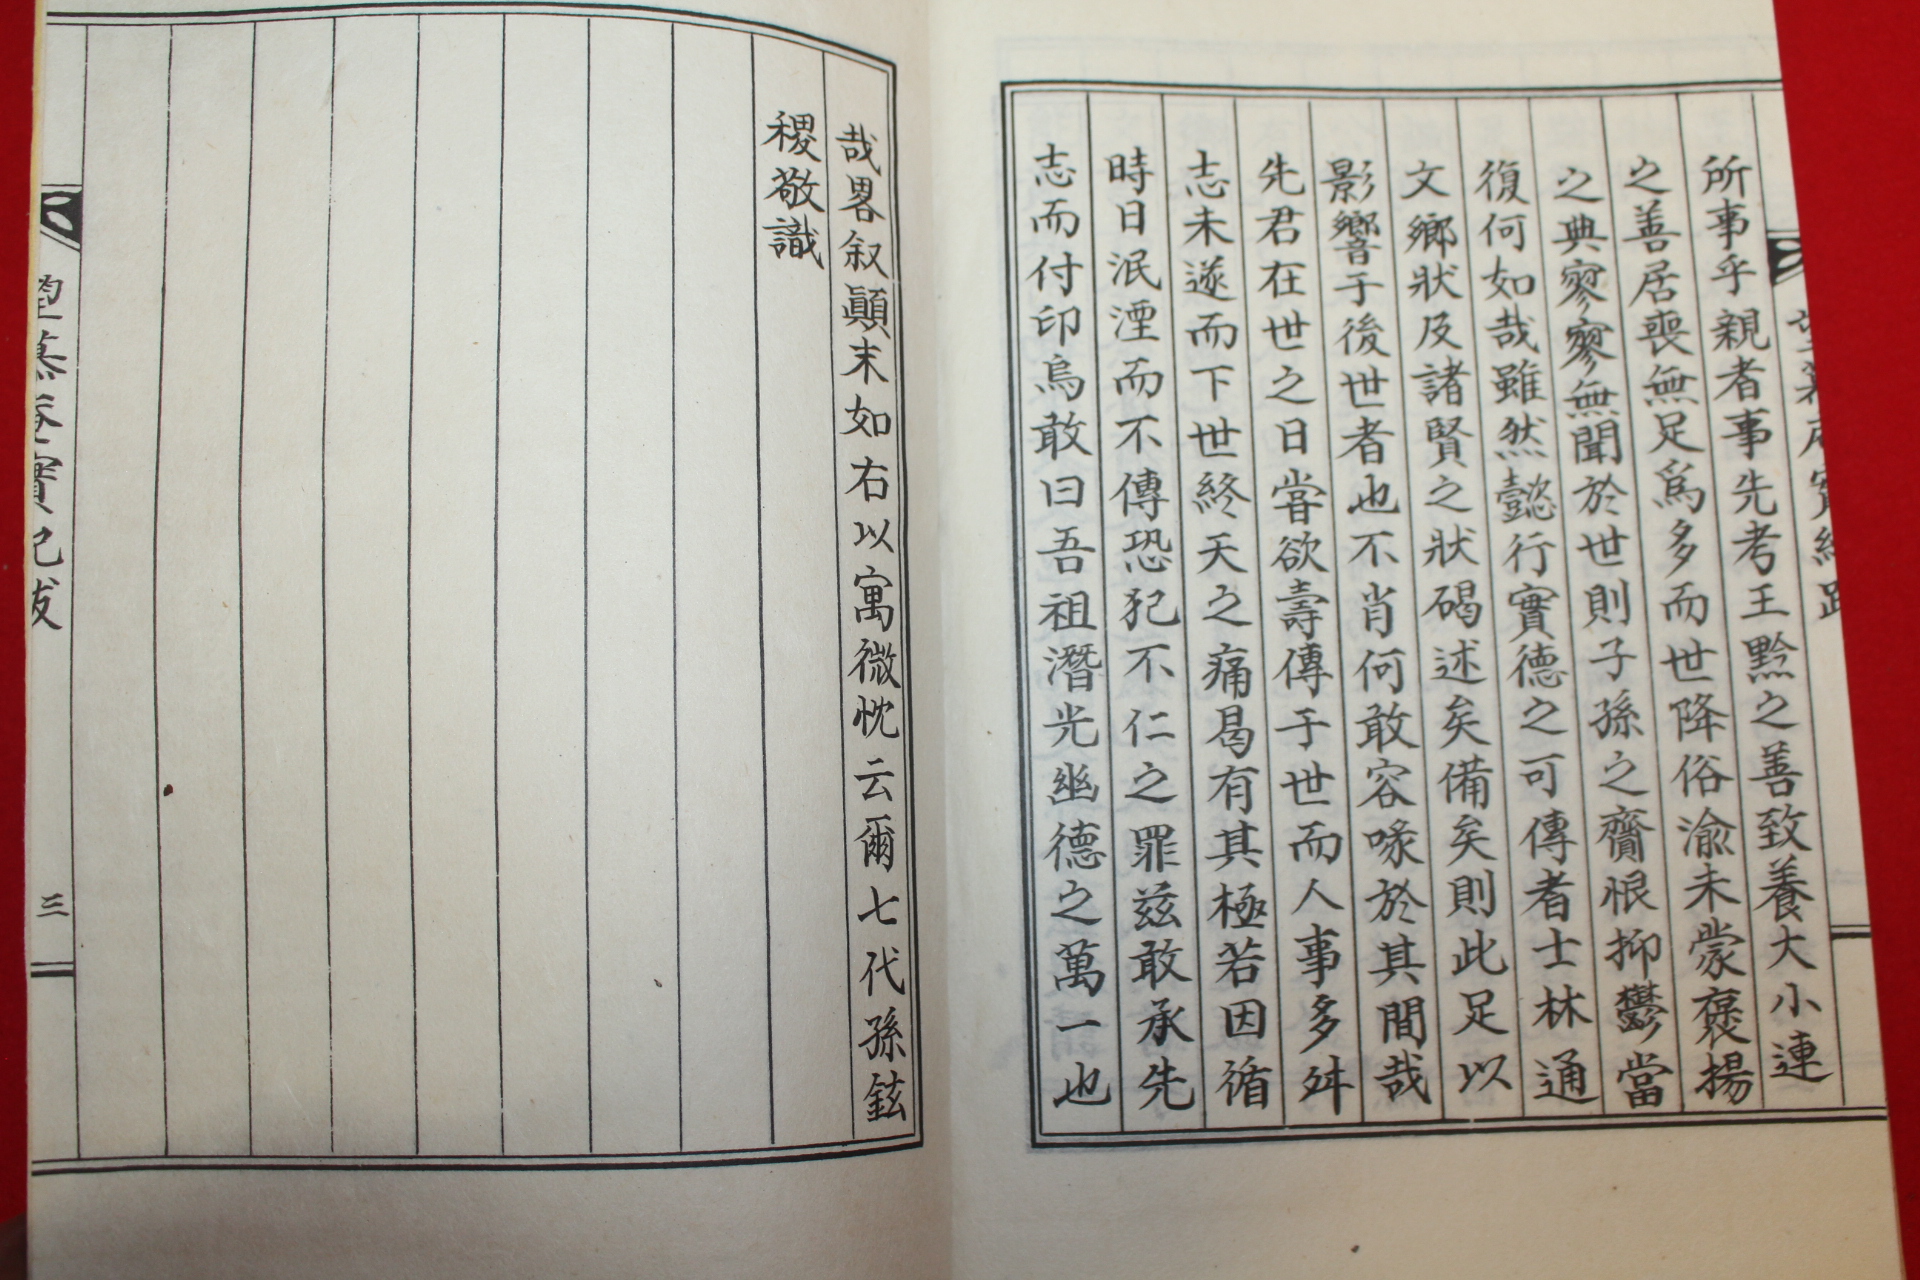 所事乎親者事先考王黔之善致養大小連
之善居喪無足爲多而世降俗渝未蒙褒揚
之典寥寥無聞於世則子孫之齎恨抑鬱當
復何如哉雖然懿行實德之可傳者士林通
文鄉狀及諸賢之狀碣述矣備矣則此足以
影響于後世者也不肖何敢容喙於其間哉
先君在世之日嘗欲壽傳于世而人事多舛
志未遂而下世終天之痛曷有其極若因循
時日泯湮而不傳恐犯不仁之罪兹敢承先
志而付印烏敢曰吾祖潛光幽德之萬一也
哉畧叙顚末如右以寓微忱云爾七代孫鉉
稷敬識
望慕庵實記跋
三